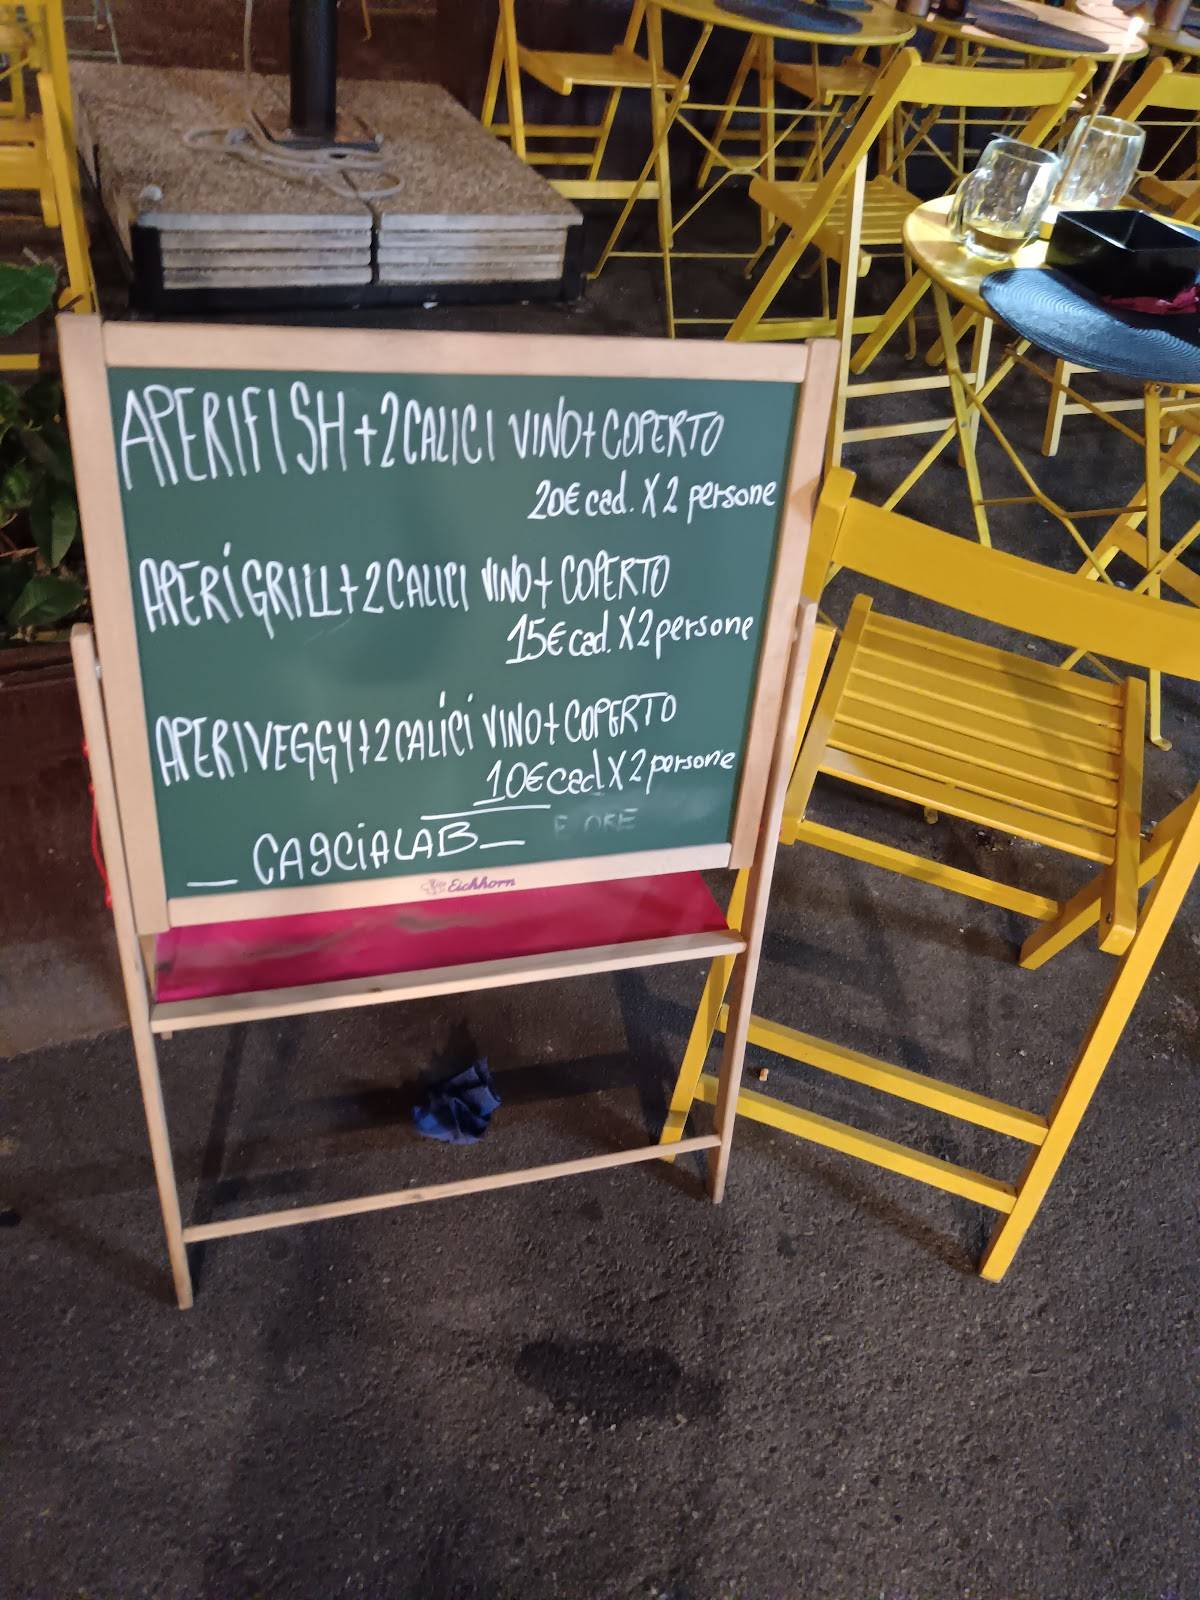 APERIFISH+2CALICI VINO+COPERTO
20€ cad. X 2 persone
APERIGRILL+2CALICI VINO+ COPERTO
15€ cad. X2 persone
APERIVEGGY+2CALICI VINO+COPERTO
10€ cad X 2 persone
_ CA9CIALAB _
Eichhorn